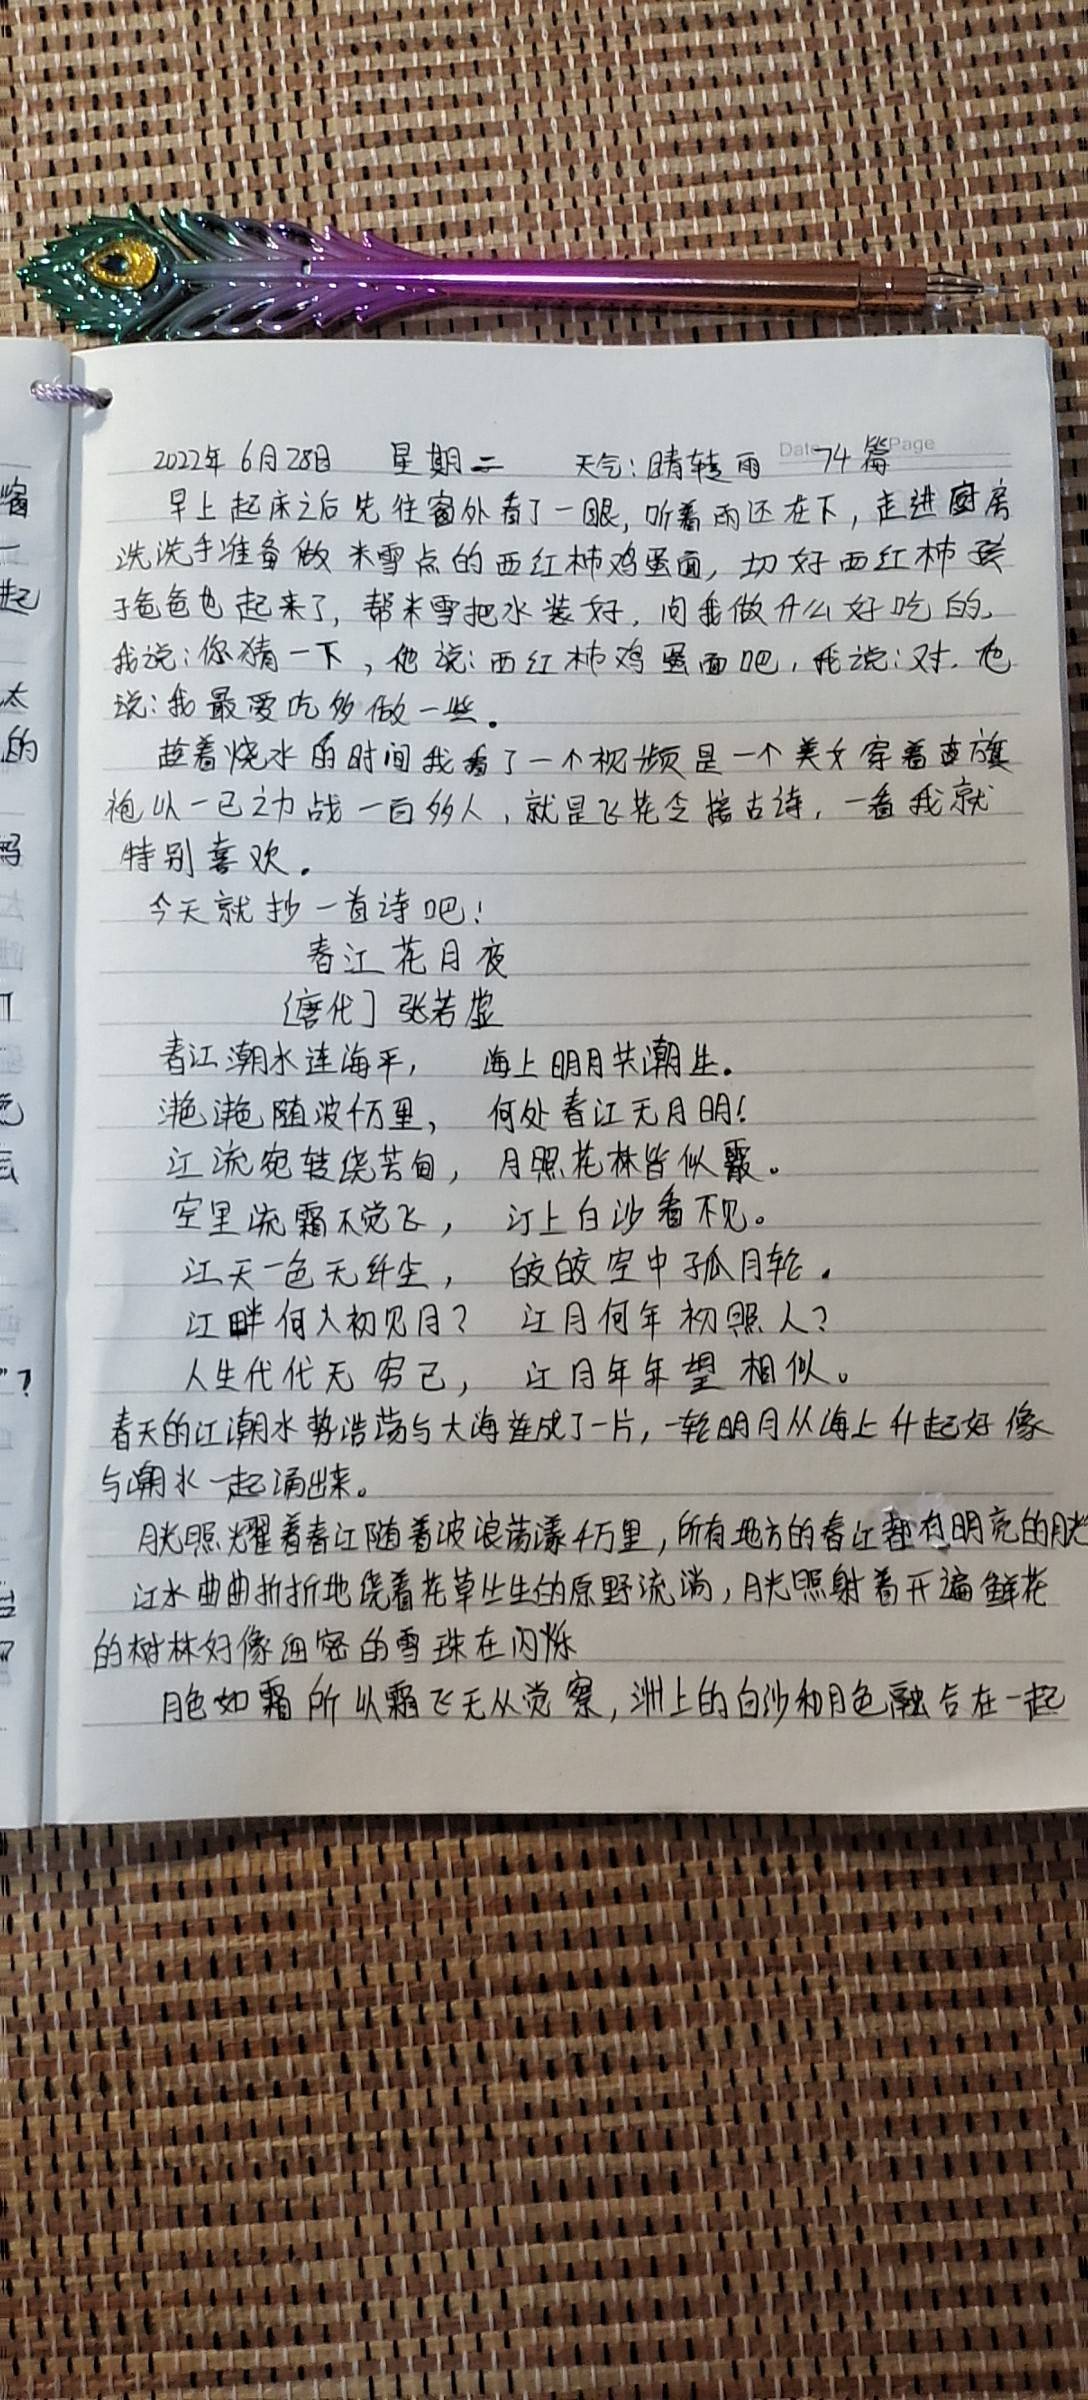 2022年6月28日 星期二 天气:晴转雨 Date 74篇 Page
早上起床之后先往窗外看了一眼,听着雨还在下,走进厨房
洗洗手准备做米雪点的西红柿鸡蛋面,切好西红柿孩
子爸爸也起来了,帮米雪把水装好,问我做什么好吃的,
我说:你猜一下,他说:西红柿鸡蛋面吧,我说:对.他
说:我最爱吃多做一些.
趁着烧水的时间我看了一个视频是一个美女穿着旗
袍以一己之力战一百多人,就是飞花令接古诗,一看我就
特别喜欢.
今天就抄一首诗吧!
春江花月夜
[唐代]张若虚
春江潮水连海平, 海上明月共潮生.
滟滟随波千万里, 何处春江无月明!
江流宛转绕芳甸, 月照花林皆似霰。
空里流霜不觉飞, 汀上白沙看不见。
江天一色无纤尘, 皎皎空中孤月轮.
江畔何人初见月? 江月何年初照人?
人生代代无穷已, 江月年年望相似。
春天的江潮水势浩荡与大海连成了一片,一轮明月从海上升起好像
与潮水一起涌出来。
月光照耀着春江随着波浪荡漾千万里,所有地方的春江都有明亮的月光
江水曲曲折折地绕着花草丛生的原野流淌,月光照射着开遍鲜花
的树林好像细密的雪珠在闪烁
月色如霜所以霜飞无从觉察,洲上的白沙和月色融合在一起
窗
一
起
太
的
吗
"?